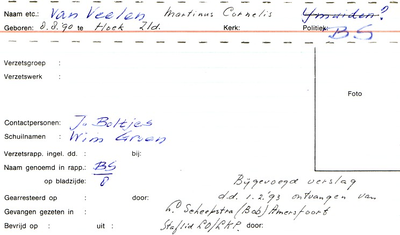 Naam etc.: Van Veelen Martinus Cornelis Ymuiden?
Geboren: 8.8.90 te Hoek Zld. Kerk: Politiek: BS
Verzetsgroep :
Verzetswerk :
Foto
Contactpersonen: J. Boltjes
Schuilnamen : Wim Groen
Verzetsrapp. ingel. dd. : bij:
Naam genoemd in rapp.: BS
op bladzijde: 8
Bijgevoegd verslag
Gearresteerd op : door: d.d. 1.2.'93 ontvangen van
Gevangen gezeten in : Scheepstra (Bob) Amersfoort
Bevrijd op : uit : Staflid LO/LKP. door: